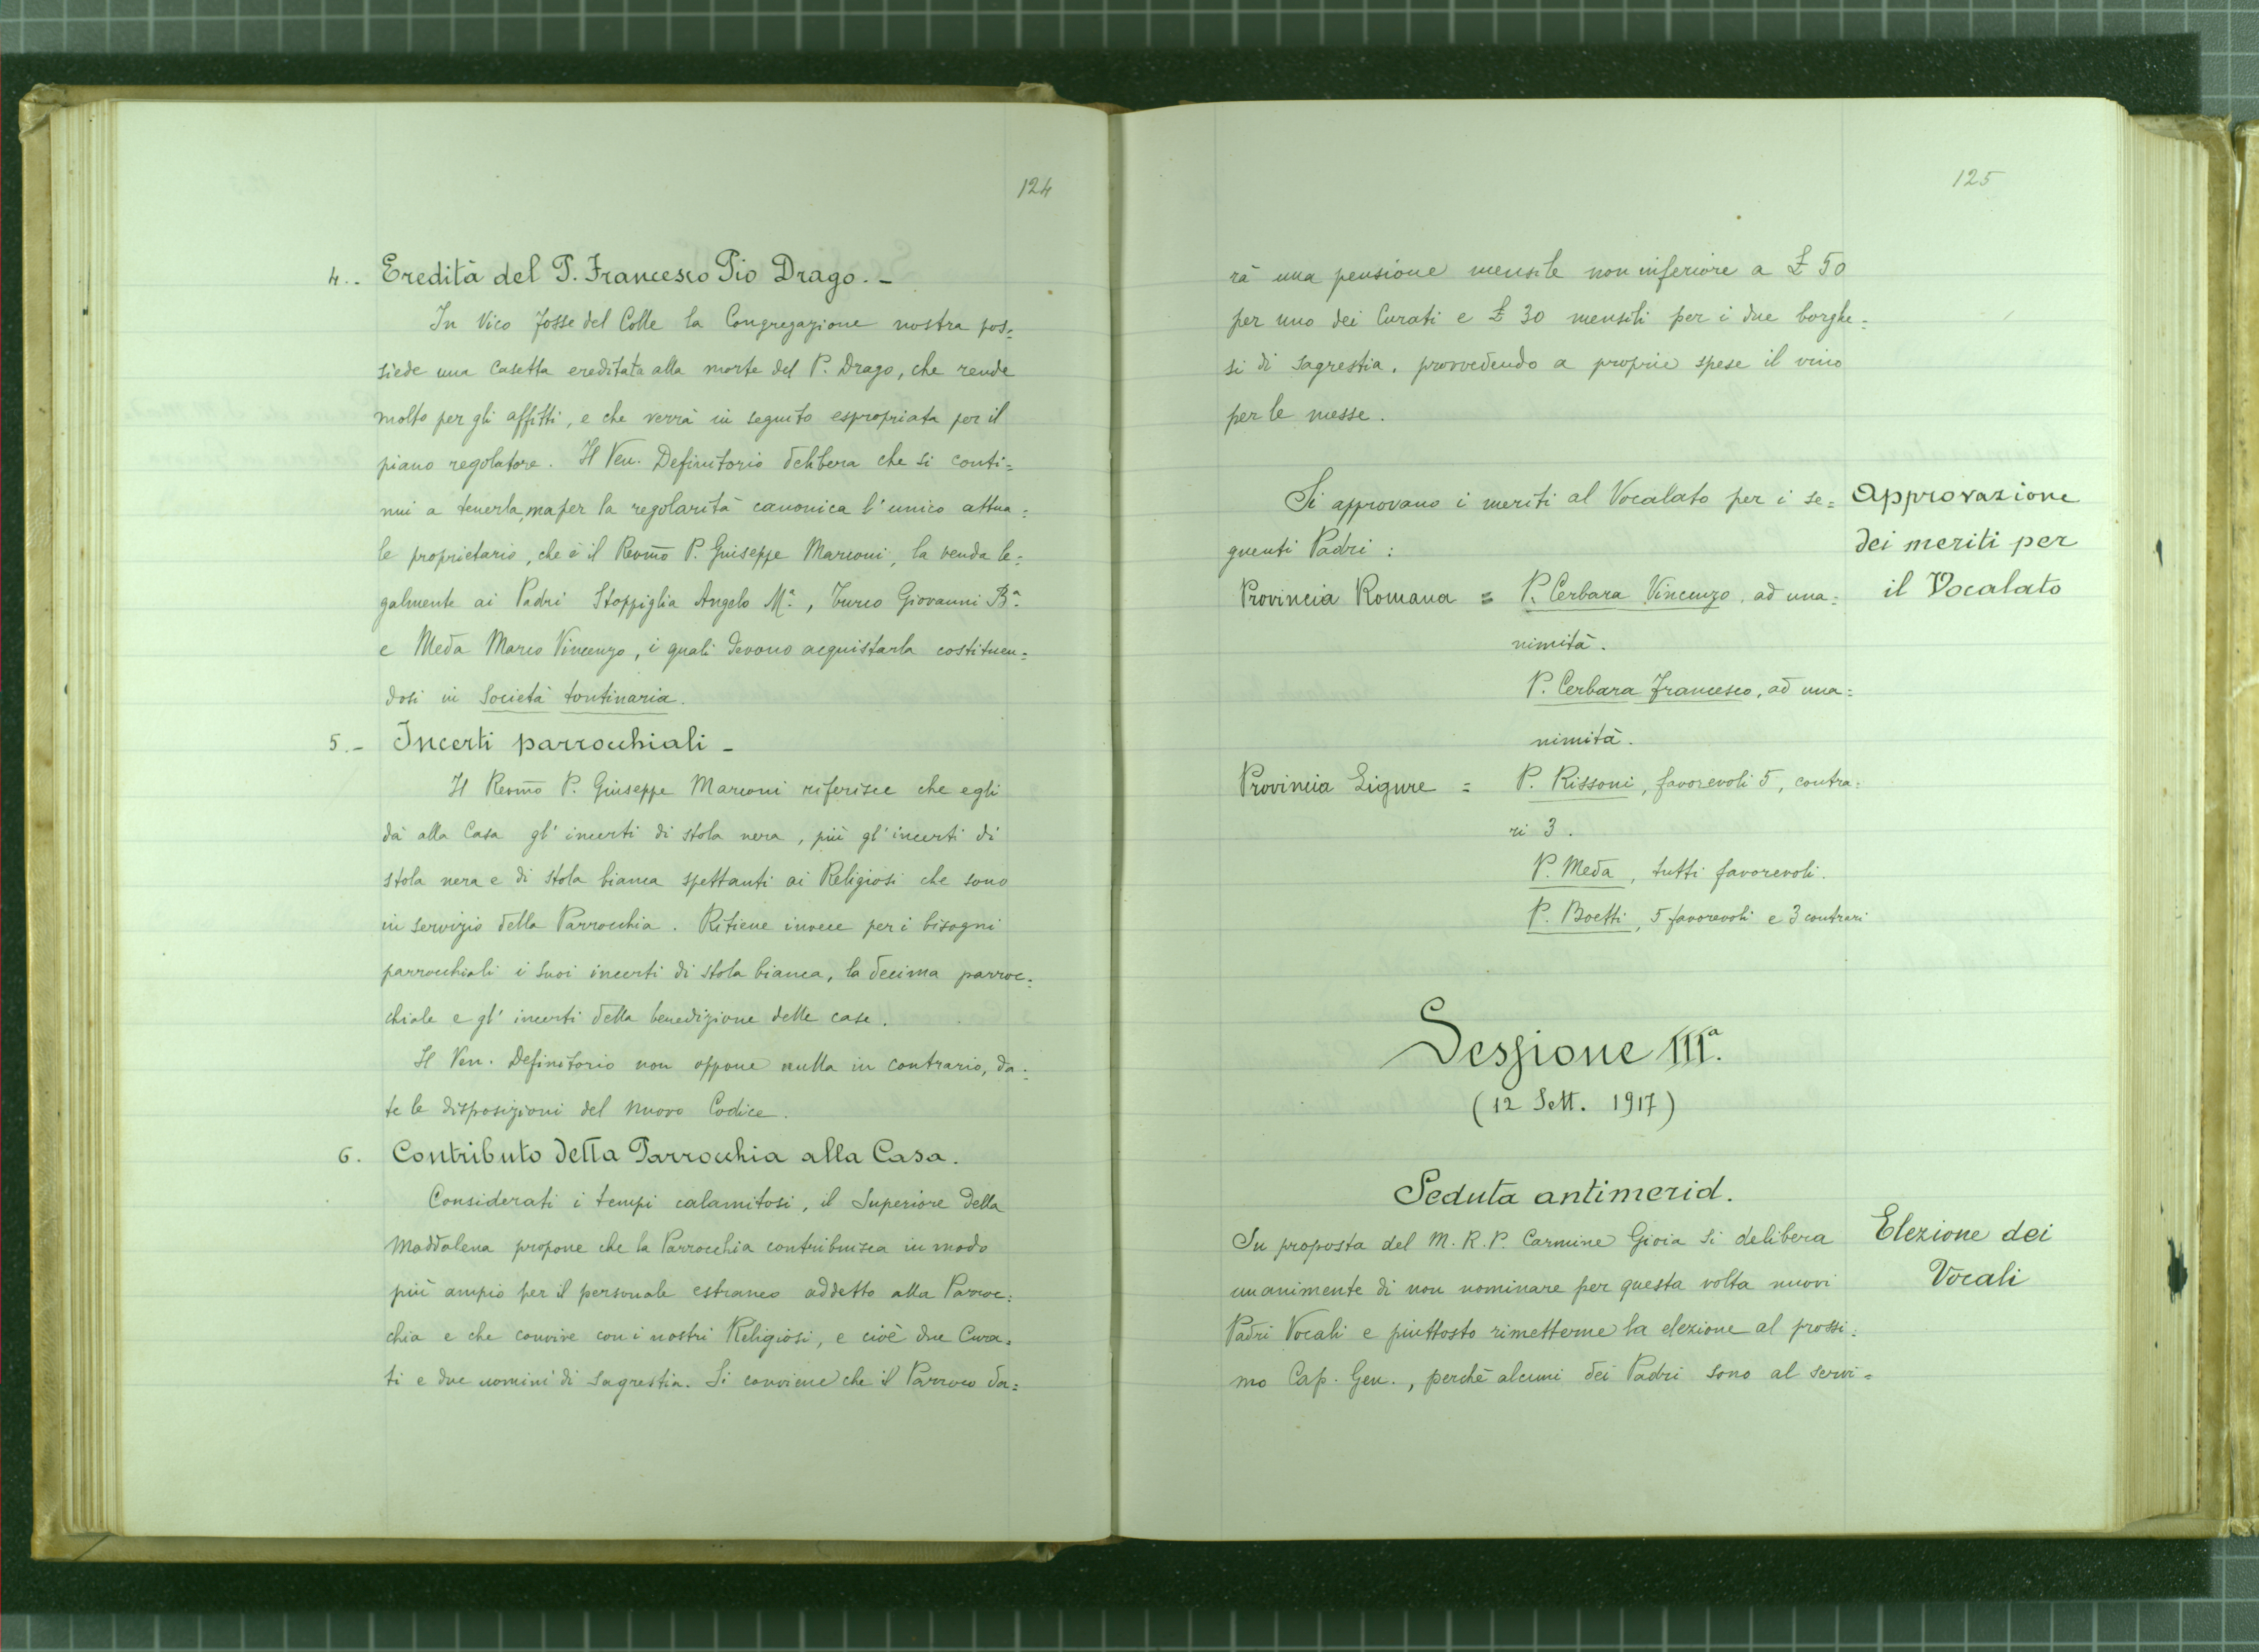 124
4.. Eredità del P. Francesco Pio Drago. -
In Vico Fosse del Colle la Congregazione nostra pos=
siede una casetta ereditata alla morte del P. Drago, che rende
molto per gli affitti, e che verrà in seguito espropriata per il
piano regolatore. Il Ven. Definitorio delibera che si conti=
nui a tenerla, ma per la regolarità canonica l'unico attua=
le proprietario, che è il Revmo P. Giuseppe Marconi, la venda le=
galmente ai Padri Stoppiglia Angelo Mª., Turco Giovanni Bª.
e Meda Marco Vincenzo, i quali devono acquistarla costituen=
dosi in Società tontinaria.
5.- Incerti parrocchiali -
Il Revmo P. Giuseppe Marconi riferisce che egli
dà alla Casa gl'incerti di stola nera, più gl'incerti di
stola nera e di stola bianca spettanti ai Religiosi che sono
in servizio della Parrocchia. Ritiene invece per i bisogni
parrocchiali i suoi incerti di stola bianca, la decima parroc=
chiale e gl'incerti della benedizione delle case.
Il Ven. Definitorio non oppone nulla in contrario, da=
te le disposizioni del nuovo Codice.
6. Contributo della Parrocchia alla Casa.
Considerati i tempi calamitosi, il Superiore della
Maddalena propone che la Parrocchia contribuisca in modo
più ampio per il personale estraneo addetto alla Parroc=
chia e che convive con i nostri Religiosi, e cioè due Cura=
ti e due uomini di sagrestia. Si conviene che il Parroco da=
125
rà una pensione mensile non inferiore a £ 50
per uno dei Curati e £ 30 mensili per i due borghe=
si di sagrestia, provvedendo a proprie spese il vino
per le messe.
Si approvano i meriti al Vocalato per i se=
guenti Padri:
Approvazione
dei meriti per
il Vocalato
Provincia Romana = P. Cerbara Vincenzo, ad una=
nimità.
P. Cerbara Francesco, ad una=
nimità.
Provincia Ligure = P. Rissoni, favorevoli 5, contra=
ri 3.
P. Meda, tutti favorevoli.
P. Boetti, 5 favorevoli e 3 contrari
Sessione IIIª.
(12 Sett. 1917)
Seduta antimerid.
Su proposta del M. R. P. Carmine Gioia si delibera
unanimente di non nominare per questa volta nuovi
Padri Vocali e piuttosto rimetterne la elezione al prossi=
mo Cap. Gen., perchè alcuni dei Padri sono al servi=
Elezione dei
Vocali